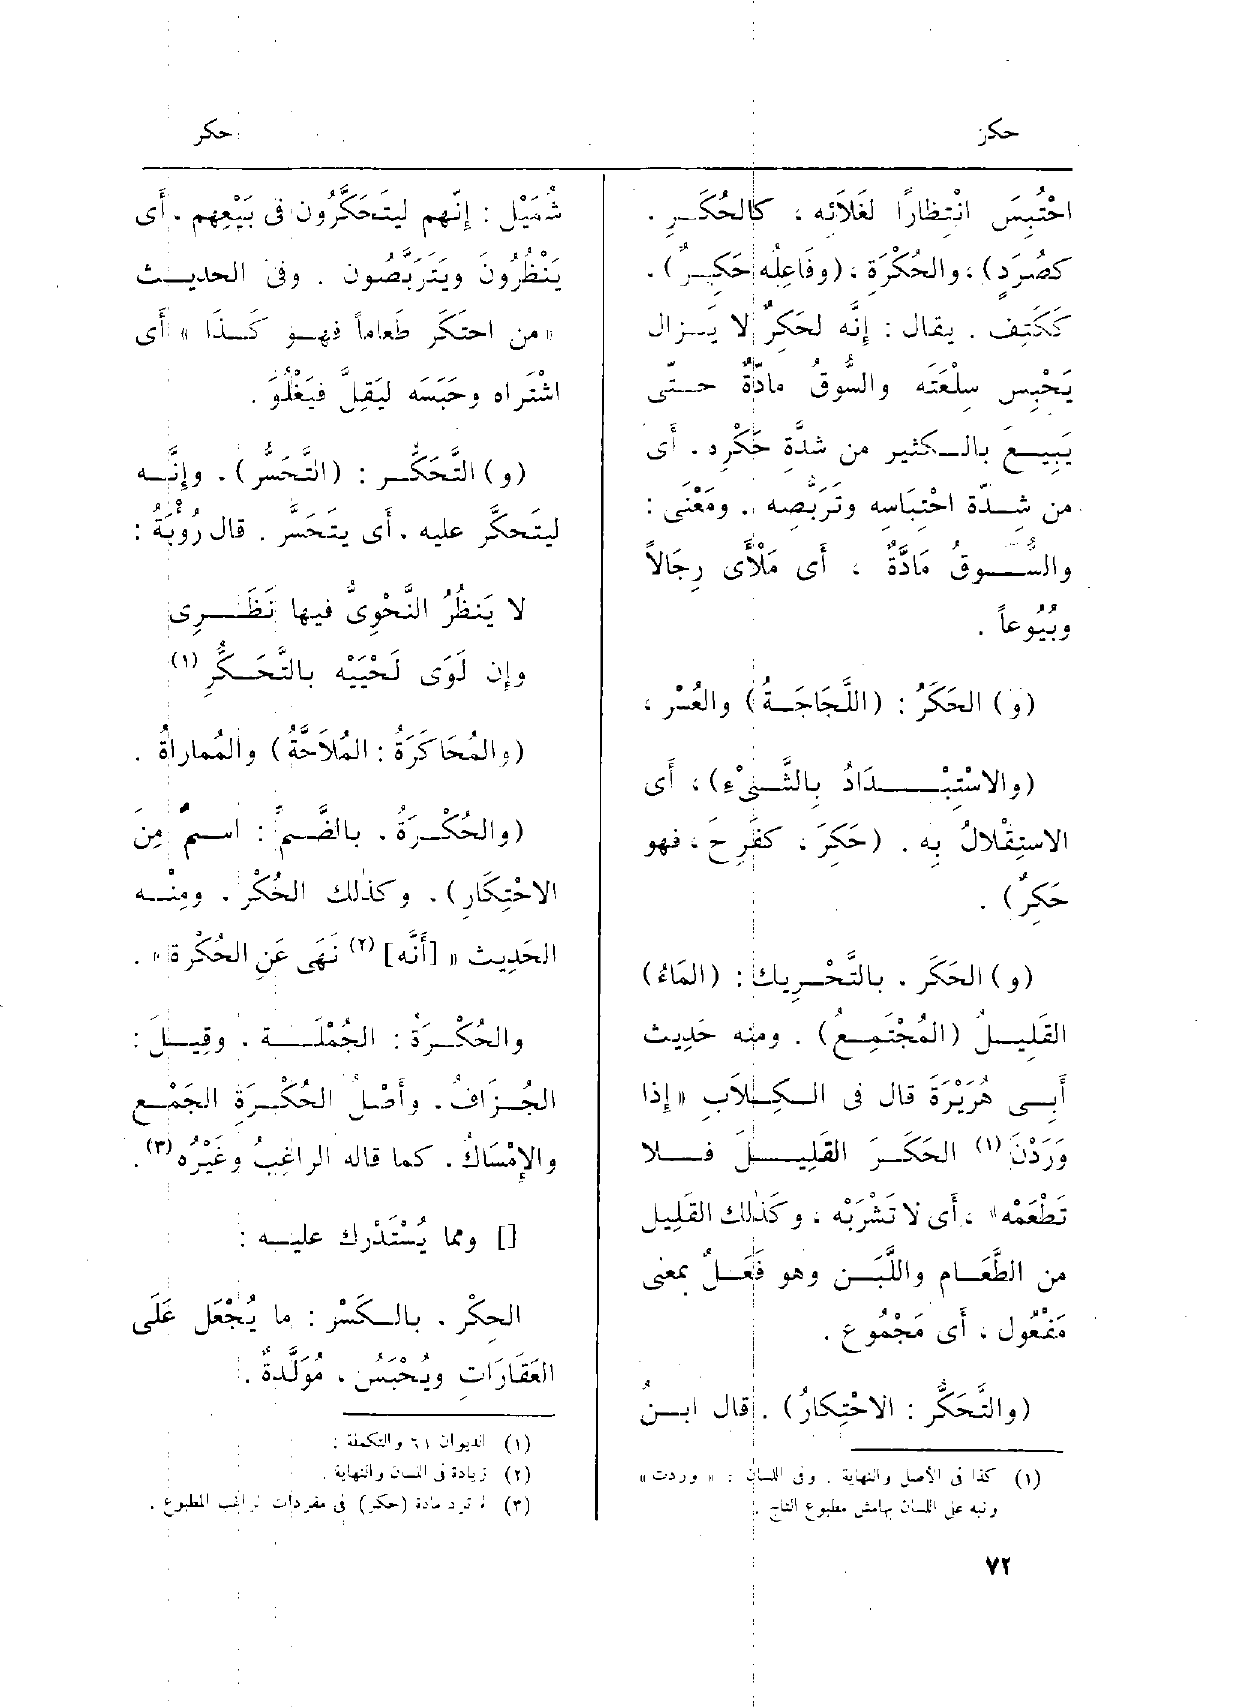 حكر
حكر
احْتُبِسَ انْتِظارًا لغَلائه ، كالحُكَـرِ .
كصُرَدٍ) ، والحُكْرَة ، (وفَاعِلُه حَكِـرٌ) .
ككَتِف . يقال : إنَّه لحَكِرٌ لا يَـزال
يَحْبِس سِلْعَتَه والسُّوقُ مادَّةٌ حـتّى
يَبِيـعَ بالـكثير من شدَّةِ حَكْرِه . أَى
من شِـدّة احْتِبَاسِه وتَرَبُّصِه . ومَعْنَى :
والسُّـوقُ مَادَّةٌ ، أَى مَلْأَى رِجَالاً
وبُيُوعاً .
(و) الحَكَرُ : (اللَّجَاجَـةُ) والعُسْر ،
(والاسْتِبْـدَادُ بِالشَّـىْءِ) ، أَى
الاستِقْلالُ بِه . (حَكِرَ ، كفَرِحَ ، فهو
حَكِرٌ) .
(و) الحَكَر . بالتَّحْـرِيك : (المَاءُ)
القَلِيـلُ (المُجْتَمِـعُ) . ومنه حَدِيث
أَبِـى هُرَيْرَةَ قال فى الـكِلَابِ «إذا
وَرَدْنَ (١) الحَكَـرَ القَلِيـلَ فـلا
تَطْعَمْه» ، أَى لا تَشْرَبْه ، وكَذٰلك القَلِيل
من الطَّعَـام واللَّبَـن وهو فَعَـلٌ بمعنى
مَفْعُول ، أَى مَجْمُوع .
(والتَّحَكُّر : الاحْتِكارُ) . قال ابـنُ
(١) كذا فى الأصل والنهاية . وفى اللسان : « وردت »
ونبه على اللسان بهامش مطبوع التاج .
شُمَيْل : إنّهم ليتَحَكَّرُون فى بَيْعِهم . أَى
يَنْظُرُونَ ويَتَرَبَّصُون . وفى الحديـث
«من احتَكَر طَعاماً فهـو كَـذَا » أَى
اشْتَراه وحَبَسَه ليَقِلَّ فيَغْلُوَ .
(و) التَّحَكُّـر : (التَّحَسُّر) . وإنَّـه
ليتَحكَّر عليه . أَى يتَحَسَّر . قال رُؤْبَةُ :
لا يَنظُرُ النَّحْوِىُّ فيها نَظَـرِى
وإن لَوَى لَحْيَيْه بالتَّحَـكُّرِ (١)
(والمُحَاكَرَةُ : المُلاَحَّةُ) والمُماراةُ .
(والحُكْـرَةُ . بالضَّـمّ : اسـمٌ مِنَ
الاحْتِكَارِ) . وكذٰلك الحُكْر . ومِنْـه
الحَدِيـث « [أَنَّه] (٢) نَهَى عَنِ الحُكْرة » .
والحُكْـرَةُ : الجُمْلَـة . وقِيـلَ :
الجُـزَافُ . وأَصْلُ الحُكْـرَةِ الجَمْـع
والإمْسَاكُ . كما قاله الراغِبُ وغَيْرُه (٣) .
[] ومما يُسْتَدْرك عليـه :
الحِكْر . بالـكَسْر : ما يُجْعَل عَلَى
العَقَارَاتِ ويُحْبَسُ ، مُوَلَّدةٌ .
(١) الديوان ٦١ والتكملة :
(٢) زيادة فى اللسان والنهاية .
(٣) لم ترد مادة (حكر) فى مفردات الراغب المطبوع .
٧٢